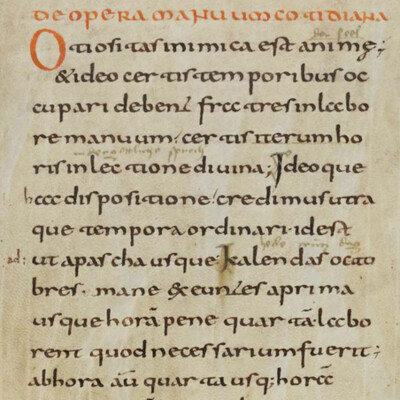 DE OPERA MANUUM COTIDIANA
Otiositas inimica est animę;
& ideo certis temporibus oc
cupari debent fratres in labo
re manuum; certis iterum ho
ris in lectione divina; Ideoque
hac dispositione credimus utra
que tempora ordinari. id est
ut a pascha usque kalendas octo
bres. mane exeuntes a prima
usque horā pene quartā labo
rent quod necessarium fuerit;
ab hora aū quarta usq; horā